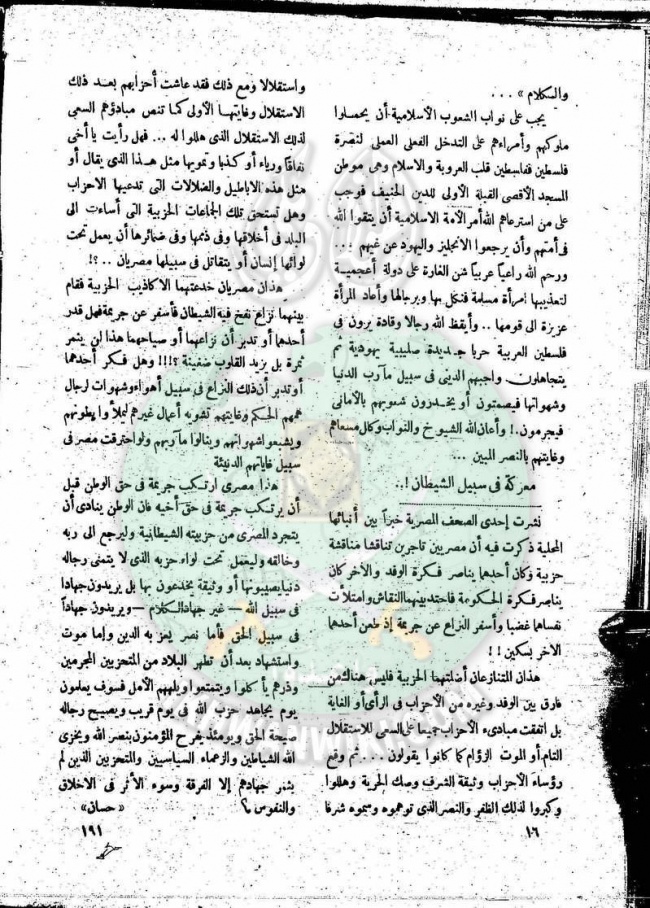 والكلام » . . .
يجب على نواب الشعوب الأسلامية أن يحملوا
ملوكهم وأمراءهم على التدخل الفعلى العملى لنصرة
فلسطين ففلسطين قلب العروبة والاسلام وهى موطن
المسجد الأقصى القبلة الأولى للدين الحنيف فوجب
على من استرعاهم الله أمر الأمة الاسلامية أن يتقوا الله
فى أمتهم وأن يرجعوا الانجليز واليهود عن غيهم . . .
ورحم الله راعياً عربياً شن الغارة على دولة أعجمية
لتعذيبها امرأة مسلمة فنكل بها وبرجالها وأعاد المرأة
عزيزة الى قومها . . وأيقظ الله رجالا وقادة يرون فى
فلسطين العربية حربا جديدة صليبية يهودية ثم
يتجاهلون واجبهم الدينى فى سبيل مآرب الدنيا
وشهواتها فيصمتون أو يخدرون شعوبهم بالأمانى
فيجرمون . ! وأعان الله الشيوخ والنواب وكلل مسعاهم
وغايتهم بالنصر المبين . . .
معركة فى سبيل الشيطان ! . .
نشرت إحدى الصحف المصرية خبراً بين أنبائها
المحلية ذكرت فيه أن مصريين تاجرين تناقشا مناقشة
حزبية وكان أحدهما يناصر فكرة الوفد والآخر كان
يناصر فكرة الحكومة فاحتد بينهما النقاش وامتلأت
نفساهما غضبا وأسفر النزاع عن جريمة إذ طعن أحدهما
الآخر بسكين ! !
هذان المتنازعان أضلتهما الحزبية فليس هناك من
فارق بين الوفد وغيره من الأحزاب فى الرأى أو الغاية
بل اتفقت مبادىء الأحزاب جميعا على السعى للاستقلال
التام أو الموت الزؤام كما كانوا يقولون . . . ثم وقع
رؤساء الأحزاب وثيقة الشرف وصك الحرية وهللوا
وكبروا لذلك الظفر والنصر الذى توهموه وسموه شرفا
١٦
واستقلالا ومع ذلك فقد عاشت أحزابهم بعد ذلك
الاستقلال وغايتها الأولى كما تنص مبادؤهم السعى
لذلك الاستقلال الذى هللوا له . . . فهل رأيت يا أخى
نفاقا ورياء أو كذبا وتمويها مثل هذا الذى يقال أو
مثل هذه الأباطيل والضلالات التى تدعيها الاحزاب
وهل تستحق تلك الجماعات الحزبية التى أساءت الى
البلد فى أخلاقها وفى ذممها وفى ضمائرها أن يعمل تحت
لوائها إنسان أو يتقاتل فى سبيلها مصريان . . ؟ !
هذان مصريان خدعتهما الاكاذيب الحزبية فقام
بينهما نزاع نفخ فيه الشيطان فأسفر عن جريمة فهل قدر
أحدها أو تدبر أن نزاعهما أو صياحهما هذا لن يثمر
ثمرة بل يزيد القلوب ضغينة ؟ ! ! ! وهل فكر أحدهما
أو تدبر أن ذلك النزاع فى سبيل أهواء وشهوات لرجال
همهم الحكم وغايتهم تشويه أعمال غيرهم ليملأوا بطونهم
ويشبعوا شهواتهم وينالوا مآربهم ولو احترقت مصر فى
سبيل غاياتهم الدنيئة
هذا مصرى ارتكب جريمة فى حق الوطن قبل
أن يرتكب جريمة فى حق أخيه فان الوطن ينادى أن
يتجرد المصرى من حزبيته الشيطانية وليرجع الى ربه
وخالقه وليعمل تحت لواء حزبه الذى لا يتمنى رجاله
دنيا يصيبونها أو وثيقة يخدعون بها بل يريدون جهادا
فى سبيل الله — غير جهاد الكلام — ويريدون جهاداً
فى سبيل الحق فأما نصر يعز به الدين وإما موت
واستشهاد بعد أن تطهر البلاد من المتحزبين المجرمين
وذرهم يأكلوا ويتمتعوا ويلههم الأمل فسوف يعلمون
يوم يجاهد حزب الله فى يوم قريب ويصيح رجاله
صيحة الحق ويومئذ يفرح المؤمنون بنصر الله ويخزى
الله الشياطين والزعماء السياسيين والمتحزبين الذين لم
يثمر جهادهم إلا الفرقة وسوء الأثر فى الاخلاق
والنفوس ؟
« حسان »
١٩١